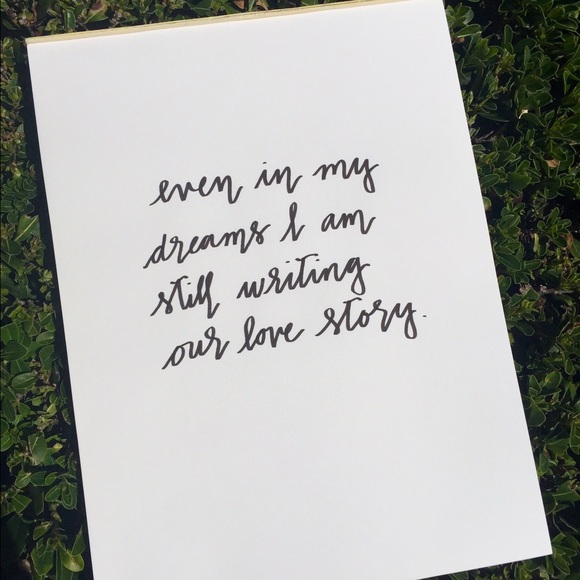 even in my
dreams I am
still writing
our love story.